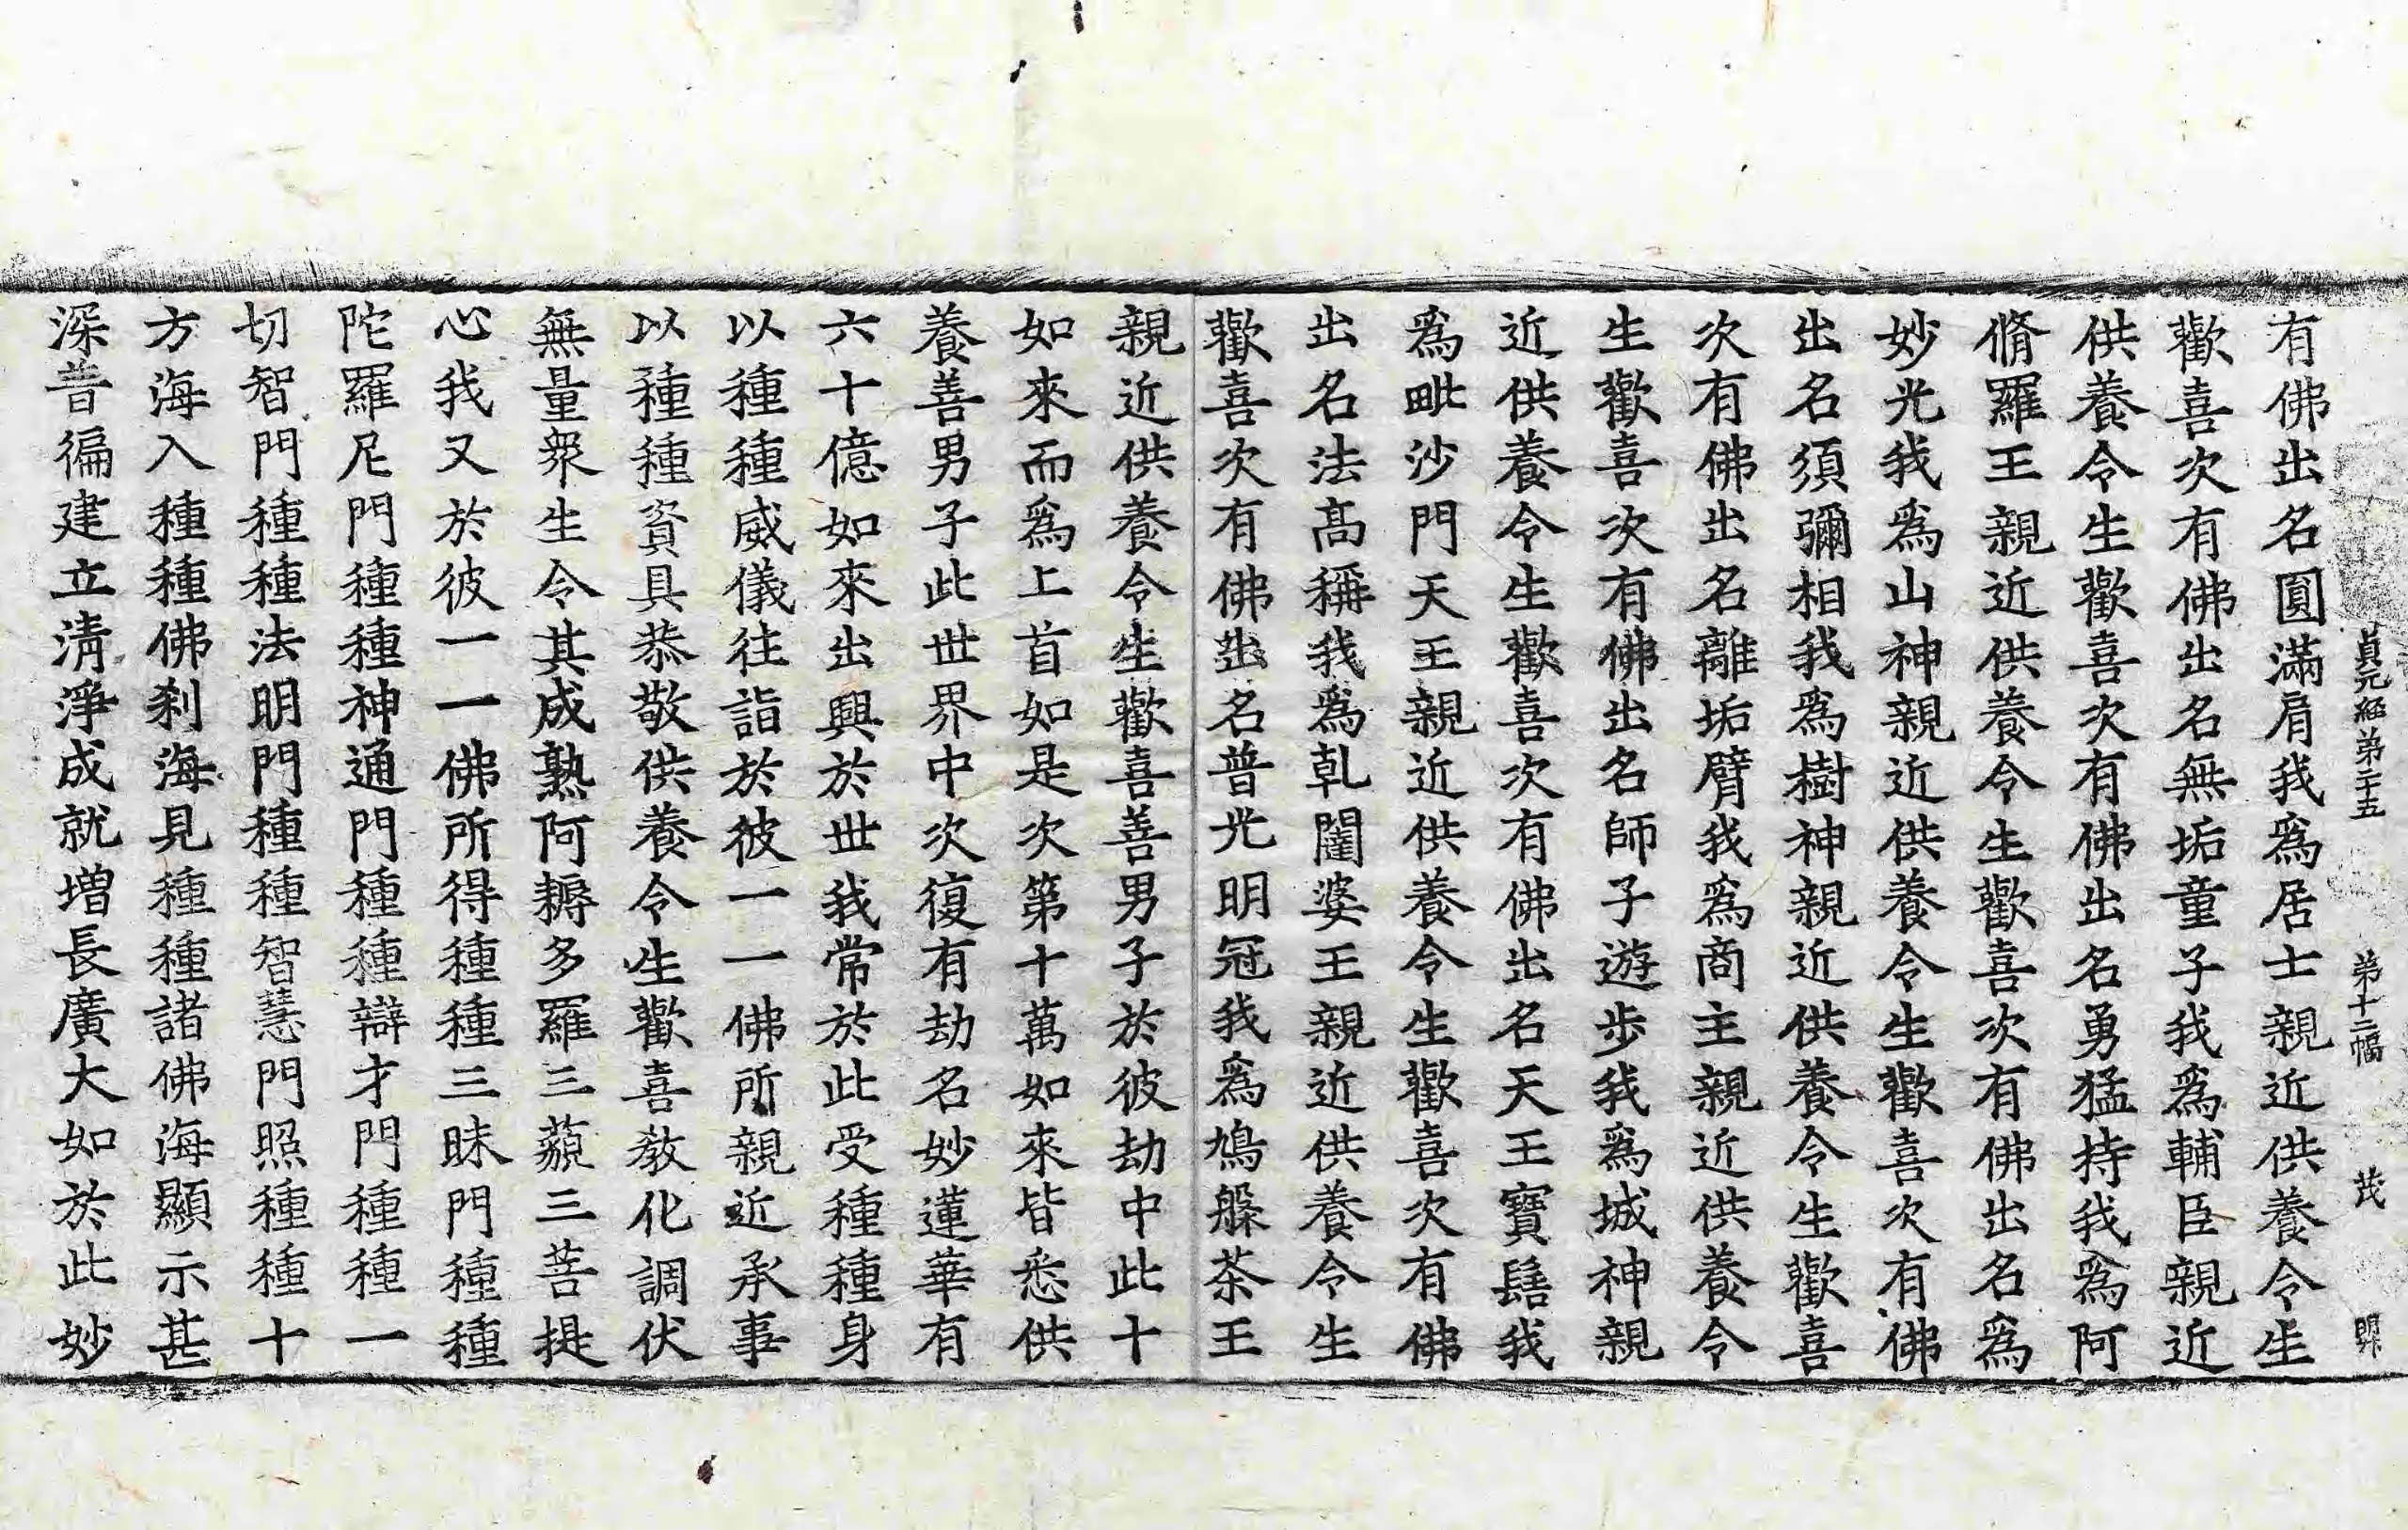 貞元經第二十五 第十二幅 茂
有佛出名圓滿肩我爲居士親近供養令生
歡喜次有佛出名無垢童子我爲輔臣親近
供養令生歡喜次有佛出名勇猛持我爲阿
脩羅王親近供養令生歡喜次有佛出名爲
妙光我爲山神親近供養令生歡喜次有佛
出名須彌相我爲樹神親近供養令生歡喜
次有佛出名離垢臂我爲商主親近供養令
生歡喜次有佛出名師子遊步我爲城神親
近供養令生歡喜次有佛出名天王寶髻我
爲毗沙門天王親近供養令生歡喜次有佛
出名法高稱我爲乹闥婆王親近供養令生
歡喜次有佛出名普光明冠我爲鳩槃茶王
親近供養令生歡喜善男子於彼劫中此十
如來而爲上首如是次第十萬如來皆悉供
養善男子此世界中次復有劫名妙蓮華有
六十億如來出興於世我常於此受種種身
以種種威儀往詣於彼一一佛所親近承事
以種種資具恭敬供養令生歡喜教化調伏
無量衆生令其成熟阿耨多羅三藐三菩提
心我又於彼一一佛所得種種三昧門種種
陀羅尼門種種神通門種種辯才門種種一
切智門種種法明門種種智慧門照種種十
方海入種種佛刹海見種種諸佛海顯示甚
深普徧建立清淨成就增長廣大如於此妙